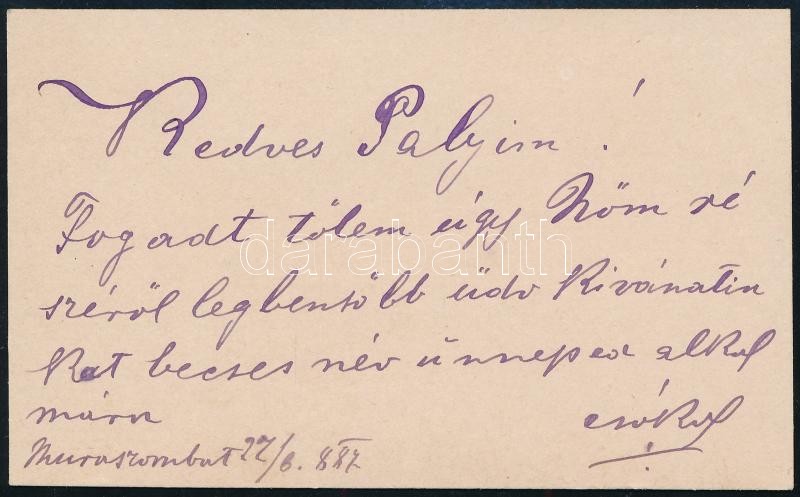 Kedves Palyim!
Fogadt tölem úgy Nöm ré
széröl legbensöbb üdv Kivánatin
Kat becses név ünneped alkal
mára csókol
Muraszombat 22/6. 887
darabanth